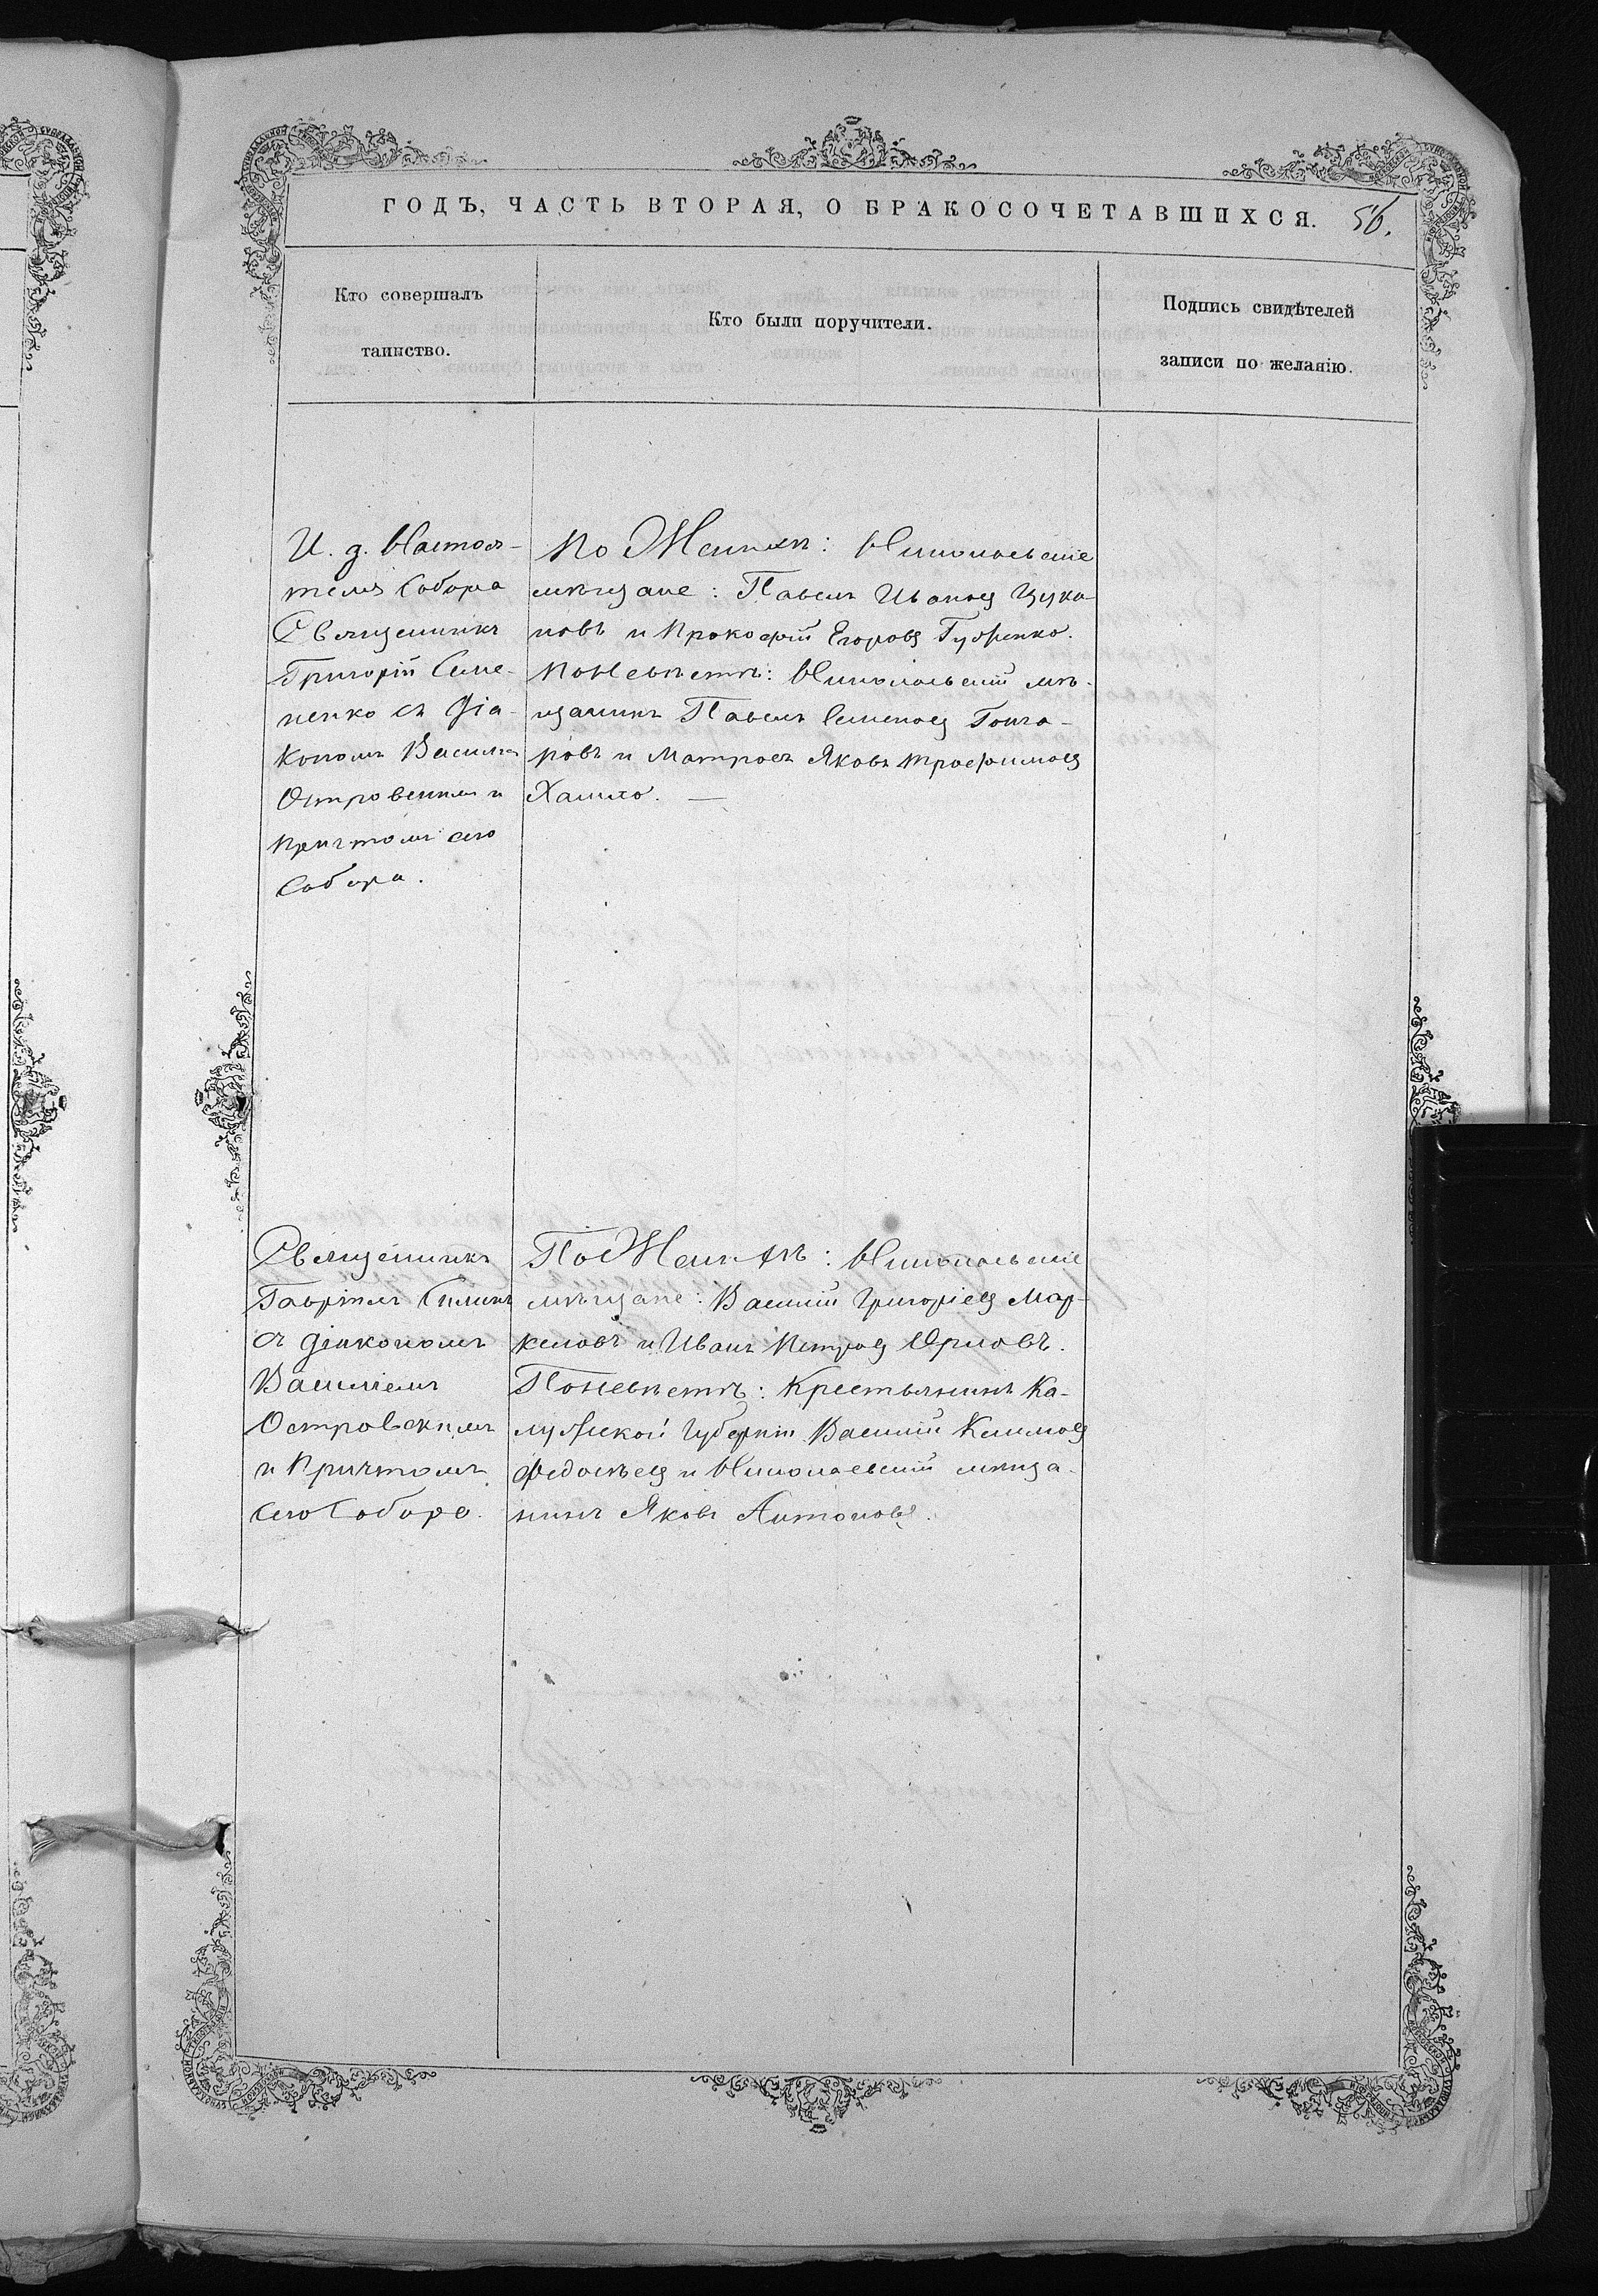 ГОДЪ, ЧАСТЬ ВТОРАЯ, О БРАКОСОЧЕТАВШИХСЯ. 56.
Кто совершалъ
таинство.
Кто были поручители.
Подпись свидѣтелей
записи по желанію.
И. д. Настоя-
теля Собора
Священникъ
Григорій Семе-
ненко съ Діа-
кономъ Василіем
Островским и
причтомъ сего
Собора.
По Женихѣ: Николаевскіе
мѣщане: Павелъ Ивановъ Цука-
новъ и Прокофій Егоровъ Губенко.
По Невѣстѣ: Николаевскій мѣ-
щанинъ Павелъ Семеновъ Гонча-
ровъ и Матросъ Яковъ Трофимовъ
Хамло.
Священникъ
Гавріилъ Сплинъ
съ діакономъ
Василіемъ
Островскимъ
и Причтомъ
сего Собора.
По Женихѣ: Николаевскіе
мѣщане: Василій Григоріевъ Мар-
келовъ и Иванъ Петровъ Орловъ.
По Невѣстѣ: Крестьянинъ Ка-
лужской Губерніи Василій Климовъ
Федосѣевъ и Николаевскій мѣща-
нинъ Яковъ Антоновъ.